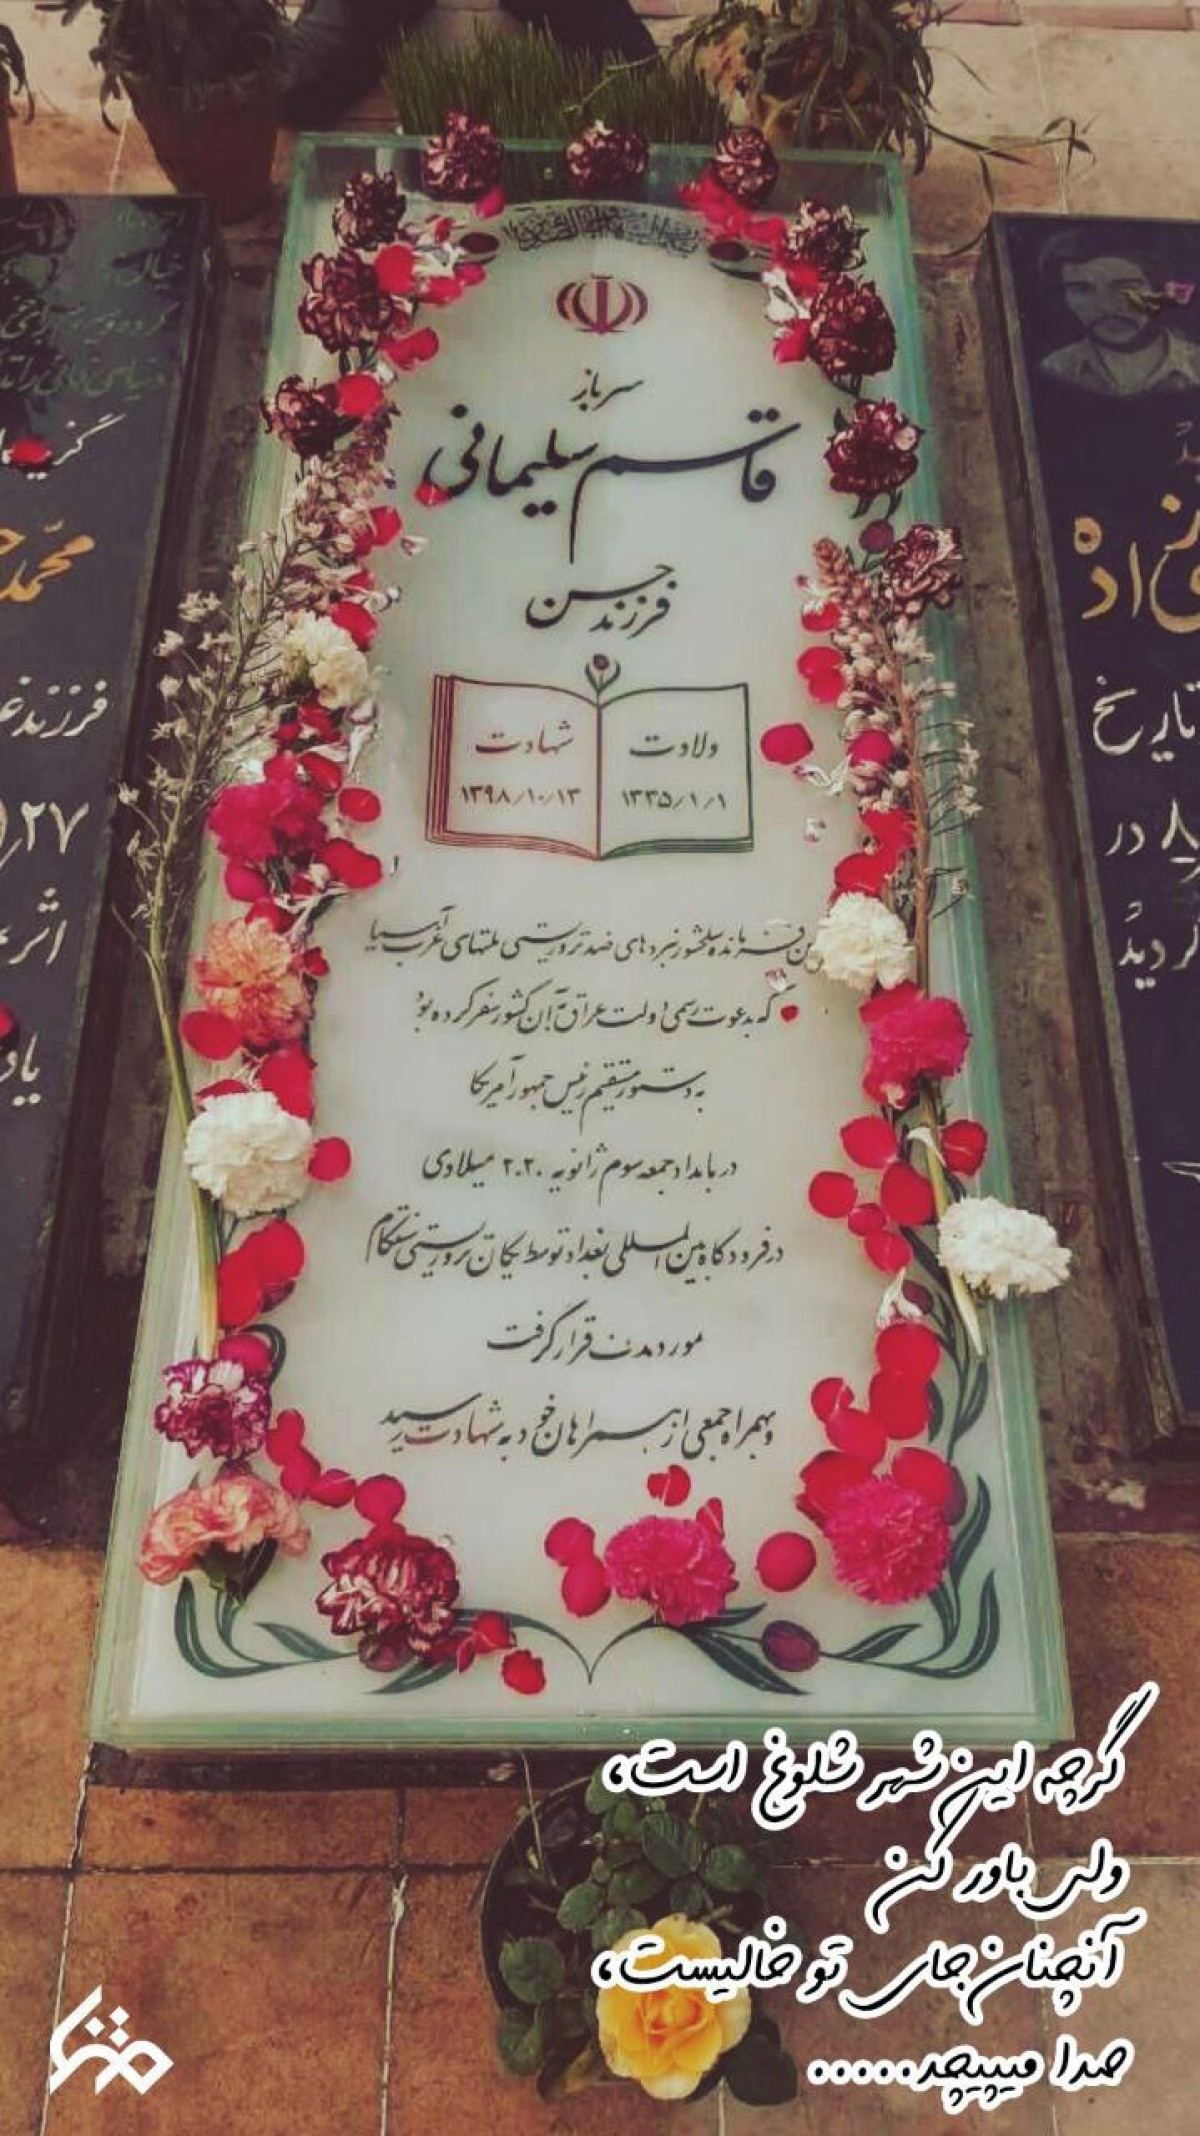 سرباز
قاسم سلیمانی
فرزند حسن
ولادت
۱۳۳۵/۱/۱
شهادت
۱۳۹۸/۱۰/۱۳
فرمانده سلحشور نبردهای ضد تروریستی ملتهای غرب آسیا
که بدعوت رسمی دولت عراق به آن کشور سفر کرده بود
به دستور مستقیم رئیس جمهور آمریکا
در بامداد جمعه سوم ژانویه ۲۰۲۰ میلادی
در فرودگاه بین المللی بغداد توسط یگان تروریستی سنتکام
مورد هدف قرار گرفت
و بهمراه جمعی از همراهان خود به شهادت رسید
محمد
فرزند
۲۷
اثر
تاریخ
در
گردید
گرچه این شهر شلوغ است،
ولی باور کن
آنچنان جای تو خالیست،
صدا میپیچد.....